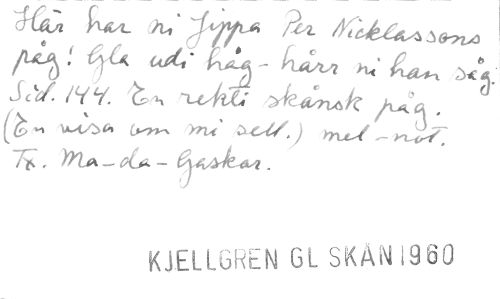 Här har ni Jippa Per Nicklassons
påg! Gla udi håg - hårr ni han såg.
Sid. 144. En rekti skånsk påg.
(En visa om mi sell.) mel-not.
Tx. Ma-da-Gaskar.
KJELLGREN GL SKÅN 1960